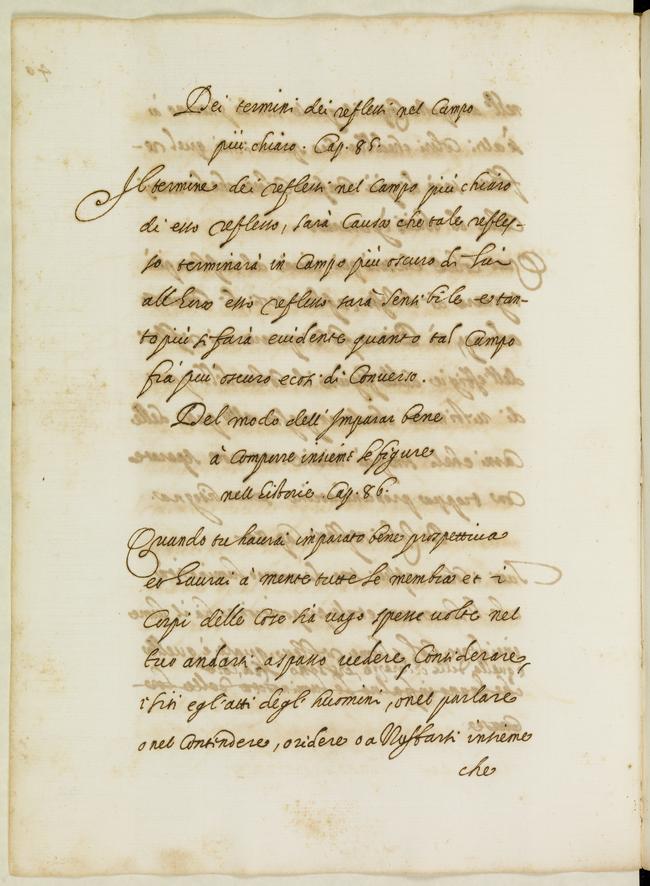 Dei termini dei reflessi nel Campo
più chiaro. Cap. 85.
Il termine dei reflessi nel Campo più chiaro
di esso reflesso, sarà Causa che tale refles-
so terminarà in Campo più oscuro di lui
all'hora esso reflesso sarà sensibile e tan-
to più si farà evidente quanto tal Campo
fia più oscuro ecosi di Converso.
Del modo dell'Imparar bene
à Comporre insieme le figure
nell'historie Cap. 86.
Quando tu haurai imparato bene prospettiva
et haurai à mente tutte le membra et i
Corpi delle Cose sia vago spesse volte nel
tuo andarti aspasso vedere, Considerare,
i siti e gl'atti degl'huomini, o nel parlare
o nel Contindere, o ridere o a insieme
che